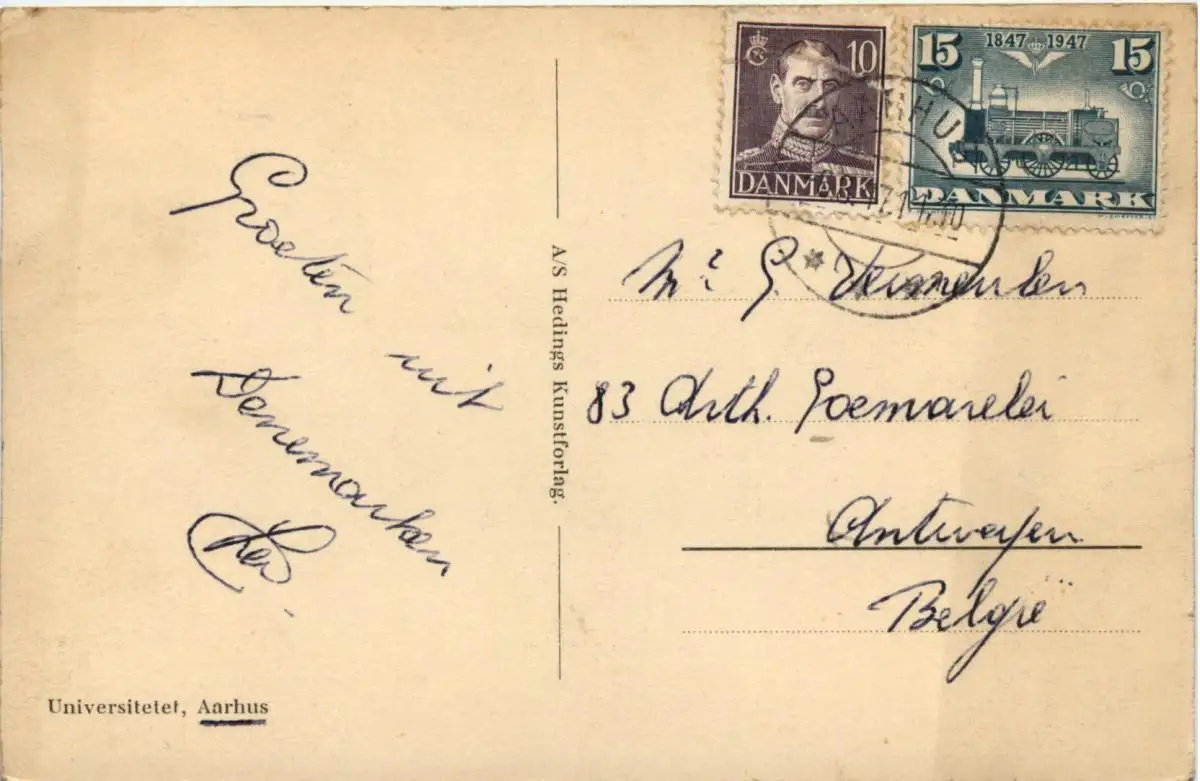 10
DANMARK
15 1847 1947 15
DANMARK
AARHUS
Groeten
uit
Denemarken
Universitetet, Aarhus
A/S Hedings Kunstforlag.
Mr G. Vermeulen
83 Arth. Goemarelei
Antwerpen
België